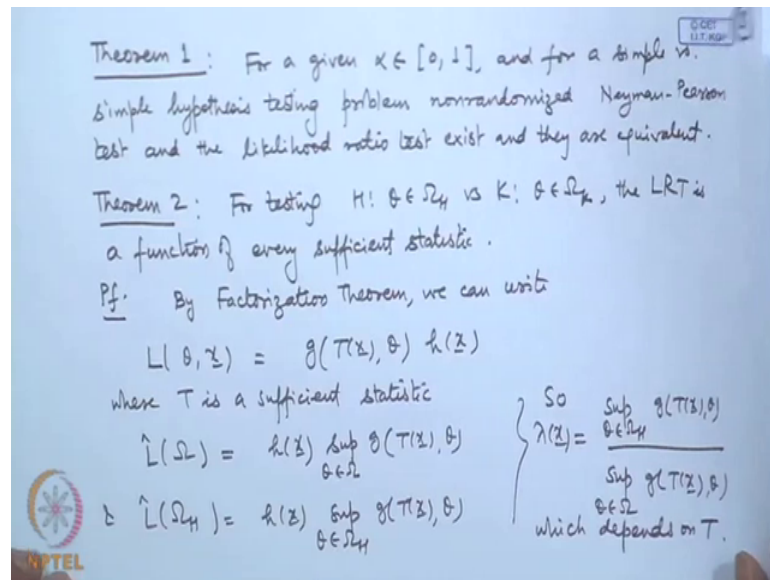 © CET
I.I.T. KGP
Theorem 1 : For a given α ∈ [0, 1], and for a simple vs.
simple hypothesis testing problem nonrandomized Neyman-Pearson
test and the likelihood ratio test exist and they are equivalent.
Theorem 2 : For testing H: θ ∈ Ω_H vs K: θ ∈ Ω_K, the LRT is
a function of every sufficient statistic.
Pf. By Factorization Theorem, we can write
L(θ, x) = g(T(x), θ) h(x)
where T is a sufficient statistic
L̂(Ω) = h(x) sup_{θ∈Ω} g(T(x), θ)
& L̂(Ω_H) = h(x) sup_{θ∈Ω_H} g(T(x), θ)
So
λ(x) = sup_{θ∈Ω_H} g(T(x), θ) / sup_{θ∈Ω} g(T(x), θ)
which depends on T.
NPTEL